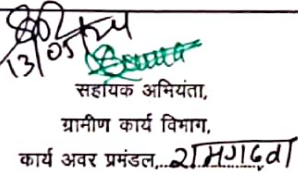 13/05/24
सहायक अभियंता,
ग्रामीण कार्य विभाग,
कार्य अवर प्रमंडल,..रामगढवा